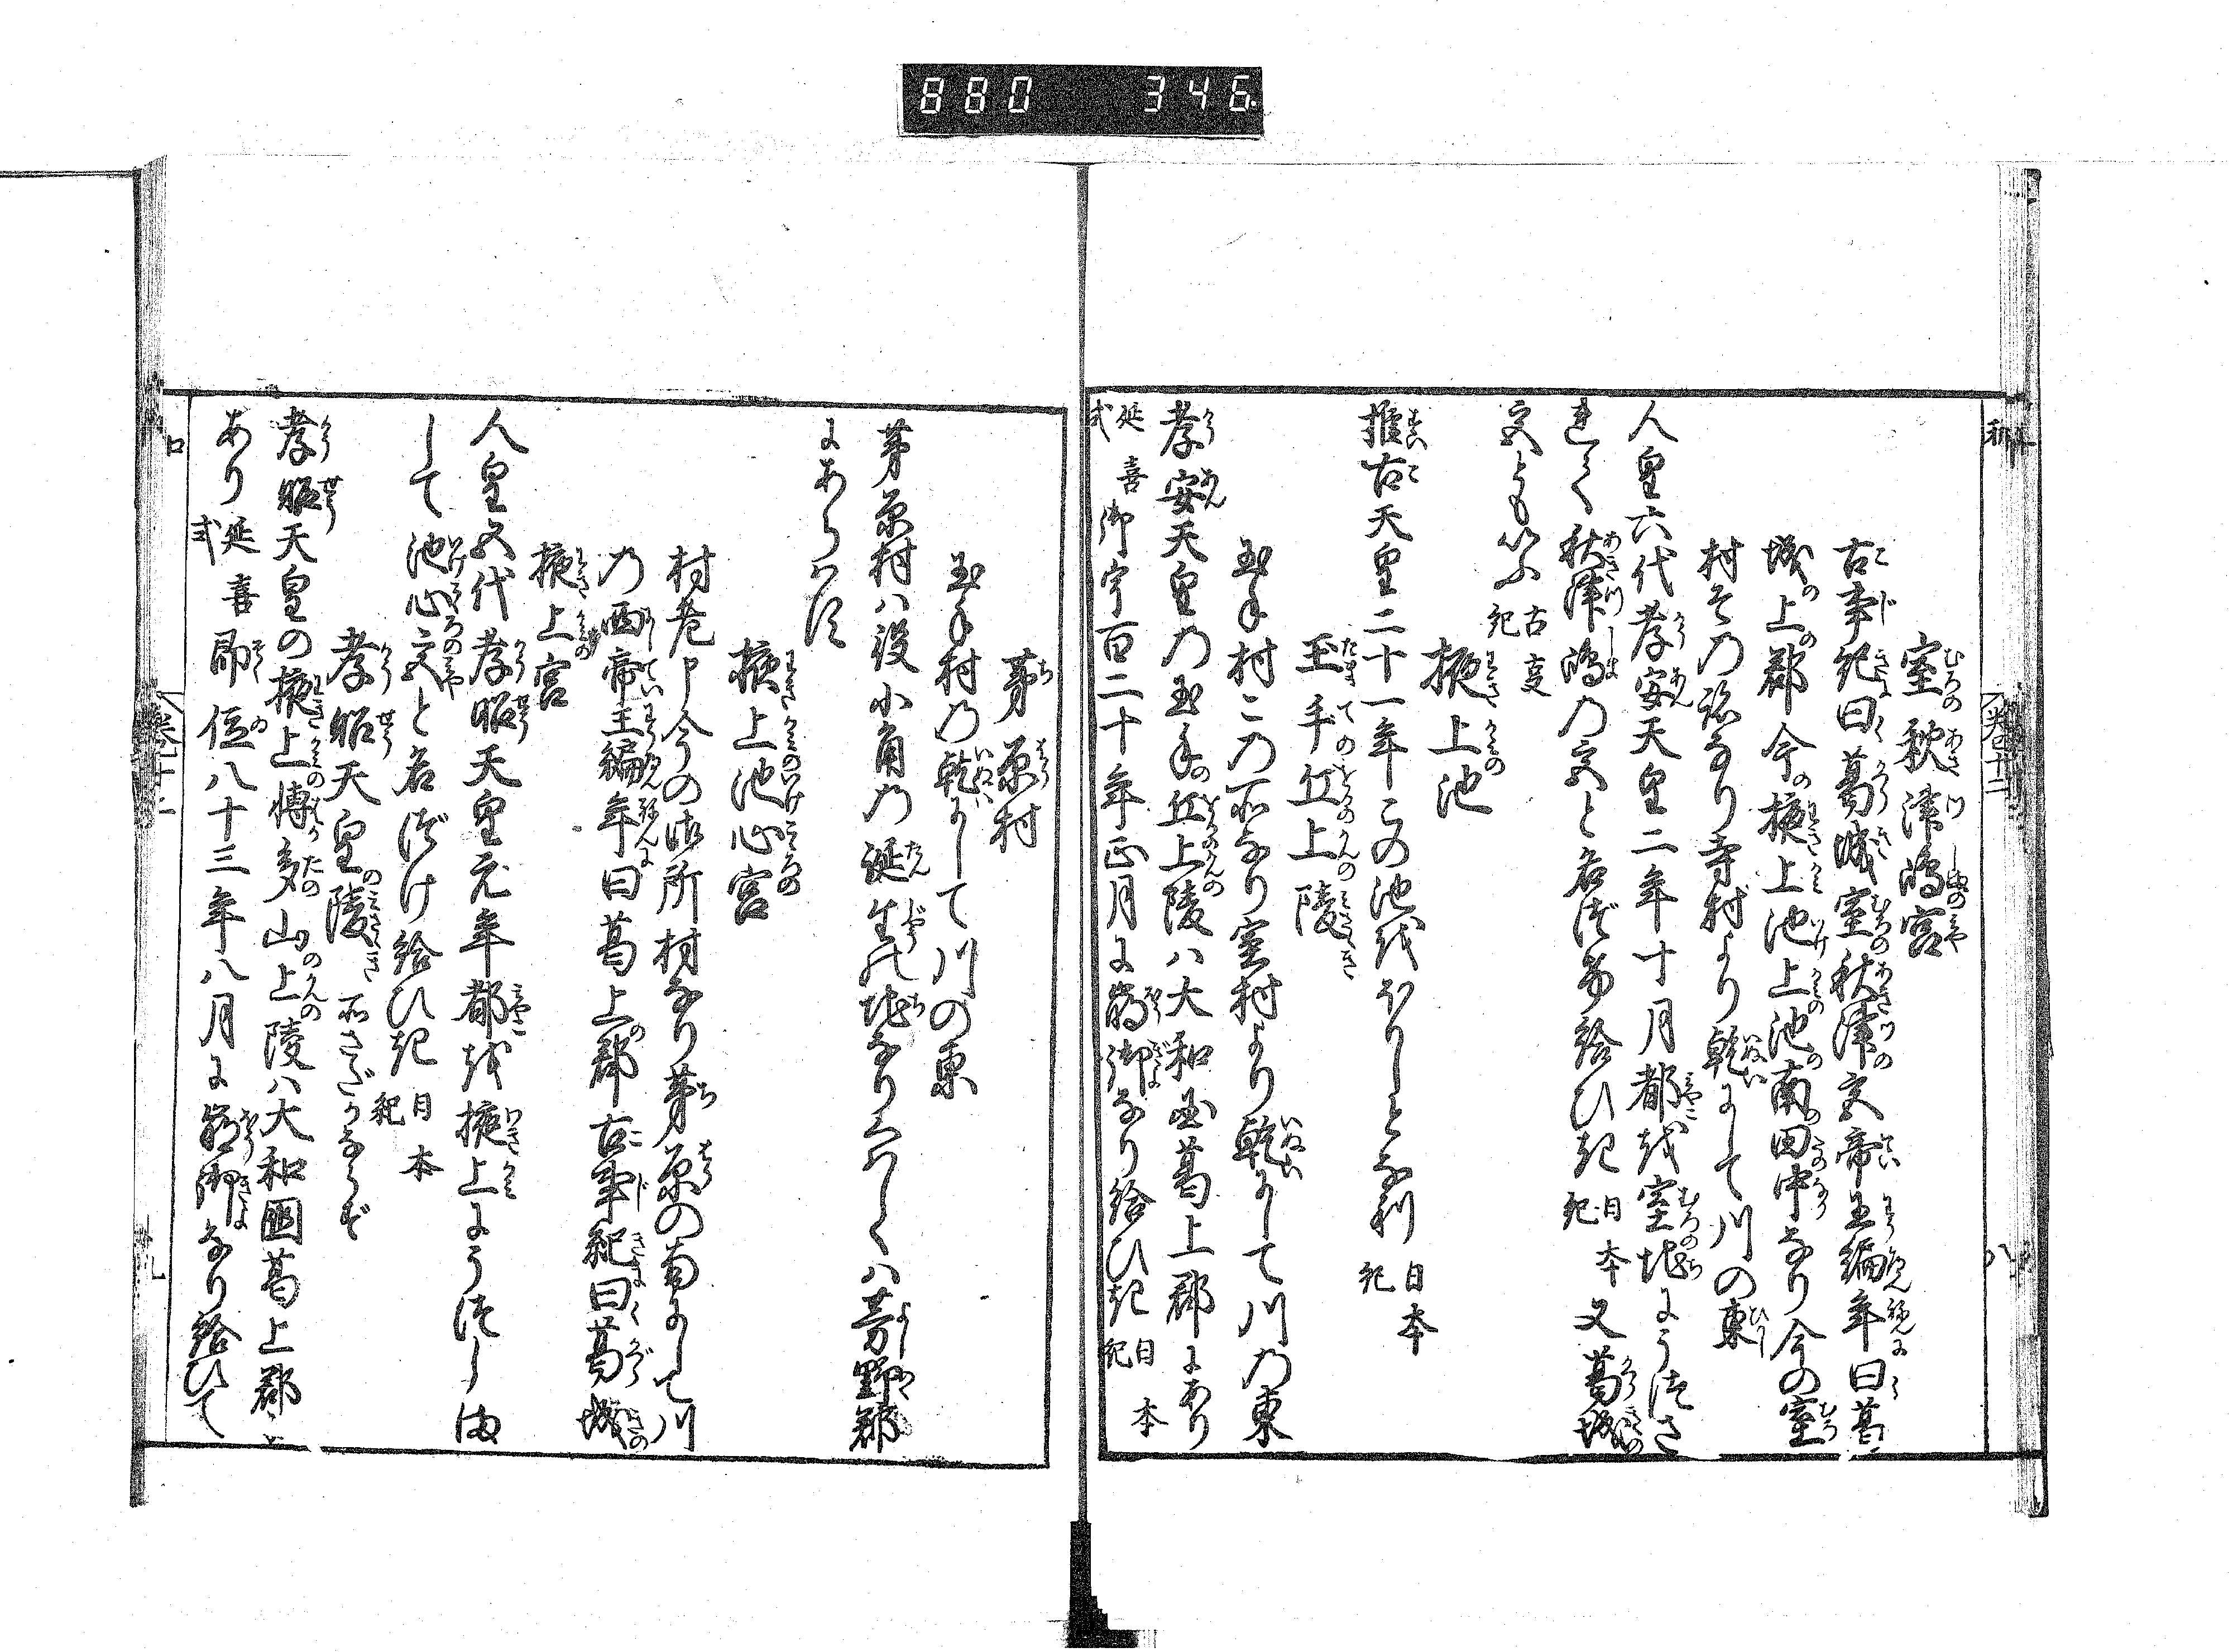 880 346
室秋津嶋宮
古事紀曰葛城室秋津宮帝王編年曰葛
城上郡今掖上池上池南田中なり今の室
村その跡なり寺村より乾にして川の東
人皇六代孝安天皇二年十月都を室地にうつさ
れて秋津嶋の宮と名づけ給ひき日本紀又葛城
宮ともいふ古事紀
掖上池
推古天皇二十一年この池をほりしとなり日本紀
玉手丘上陵
玉手村この所なり室村より乾にして川の東
孝安天皇の玉手丘上陵ハ大和国葛上郡にあり
延喜式御宇百二十年正月に崩御なり給ひき日本紀
茅原村
玉手村の乾にして川の東
茅原村ハ役小角の誕生の地なり久しくハ芳野郡
にあらはす
掖上池心宮
村老曰今の御所村なり茅原の南にして川
の西帝王編年曰葛上郡古事紀曰葛城
掖上宮
人皇五代孝昭天皇元年都を掖上にうつしま
して池心宮と名づけ給ひき日本紀
孝昭天皇陵 所さだかならず
孝昭天皇の掖上博多山上陵ハ大和國葛上郡に
あり延喜式即位八十三年八月に崩御なり給ひて
巻十二